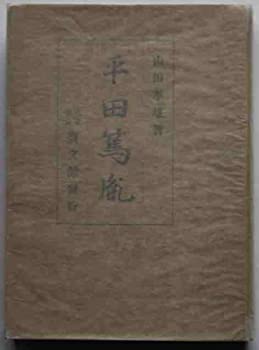 山田孝雄著
平田篤胤
寶文館發行